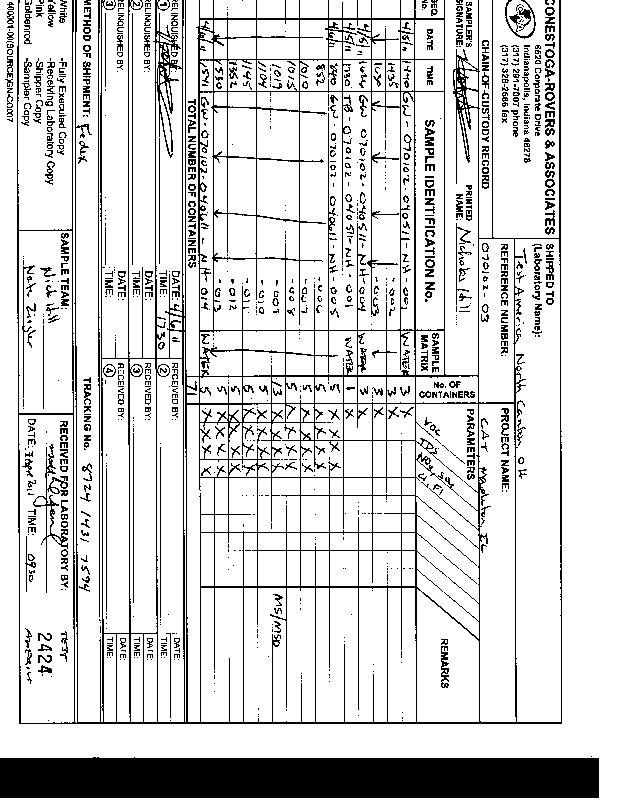 CONESTOGA-ROVERS & ASSOCIATES
6520 Corporate Drive
Indianapolis, Indiana 46278
(317) 291-7007 phone
(317) 328-2666 fax
SHIPPED TO
(Laboratory Name):
Test America North Canton OH
REFERENCE NUMBER:
070102-03
PROJECT NAME:
CAT
CHAIN-OF-CUSTODY RECORD
SAMPLER'S
SIGNATURE:
PRINTED
NAME: Nicholas Hill
SEQ. No.
DATE
TIME
SAMPLE IDENTIFICATION No.
SAMPLE
MATRIX
No. OF
CONTAINERS
PARAMETERS
VOC
TDS
REMARKS
4/5/11 GW-070102-040511-NH-001 WATER 3 X X
1435 -002 3 X
-003 3 X
4/5/11 GW 070102-040511-NH-004 WATER 3 X
4/5/11 1730 TB-070102-040511-NH-001 WATER 1 X
4/6/11 GW-070102-040611-NH-005 5 X X X X
852 -006 5 X X X X
1010 -007 5 X X X X
1015 -008 5 X X X X
1019 -009 13 X X X X MS/MSD
1104 -010 5 X X X X
1145 -011 5 X X X X
1352 -012 5 X X X X
1530 -013 5 X X X X
4/6/11 1541 GW-070102-040611-NH-014 WATER 5 X X X X
TOTAL NUMBER OF CONTAINERS 71
RELINQUISHED BY:
①
DATE: 4/6/11
TIME: 1730
RECEIVED BY:
②
DATE:
TIME:
RELINQUISHED BY:
②
DATE:
TIME:
RECEIVED BY:
③
DATE:
TIME:
RELINQUISHED BY:
③
DATE:
TIME:
RECEIVED BY:
④
DATE:
TIME:
METHOD OF SHIPMENT: Fedex
TRACKING No. 8724 1431 7594
White -Fully Executed Copy
Yellow -Receiving Laboratory Copy
Pink -Shipper Copy
Goldenrod -Sampler Copy
SAMPLE TEAM:
Nick Hill
Nate Zeigler
RECEIVED FOR LABORATORY BY:
DATE: 7 Apr 2011 TIME: 0930
TEST
2424
America